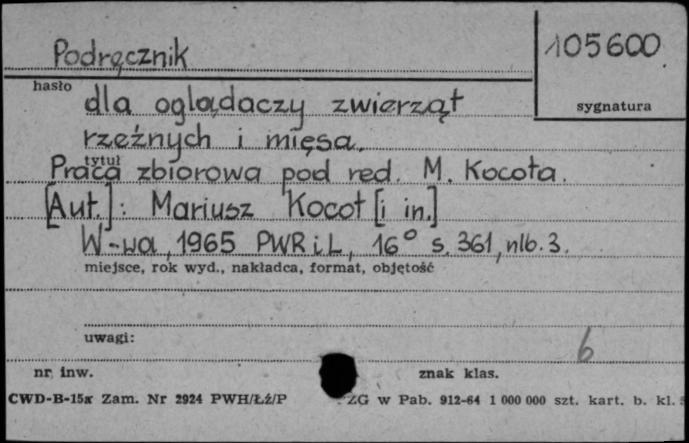 Podręcznik
105600
hasło
sygnatura
dla oglądaczy zwierząt
rzeźnych i mięsa.
tytuł
Praca zbiorowa pod red. M. Kocota.
[Aut.]: Mariusz Kocot [i in.]
W-wa, 1965 PWRiL, 16° s. 361, nlb. 3.
miejsce, rok wyd., nakładca, format, objętość
uwagi:
6
nr inw.
znak klas.
CWD-B-15x Zam. Nr 2924 PWH/Łź/P
ZG w Pab. 912-64 1 000 000 szt. kart. b. kl.